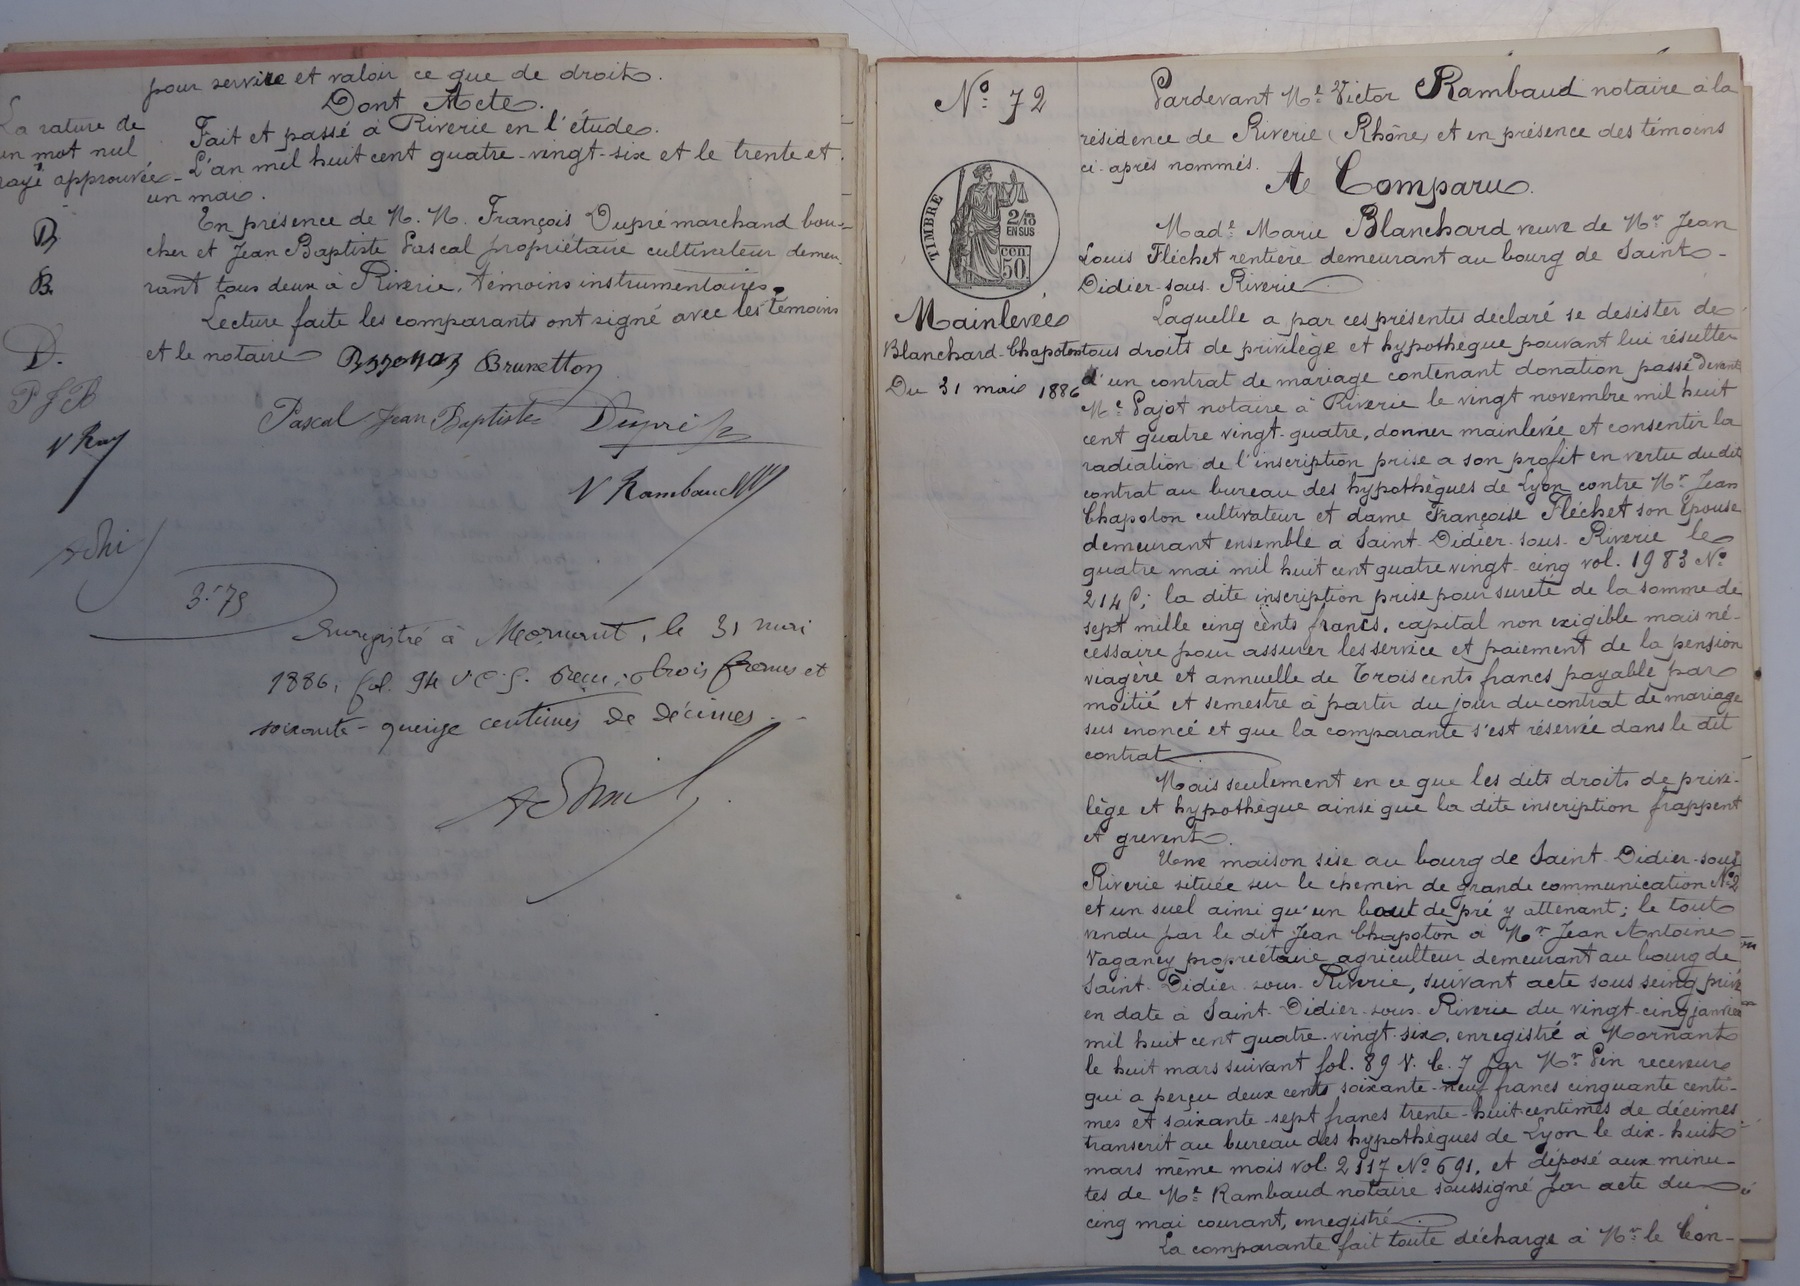 pour service et valoir ce que de droit.
Dont Acte.
La rature de
un mot nul
rayé approuvée
Fait et passé à Riverie en l'étude.
L'an mil huit cent quatre-vingt-six et le trente et
un mai.
En présence de M. M. François Dupré marchand bou-
cher et Jean Baptiste Pascal propriétaire cultivateur demeu-
rant tous deux à Riverie, témoins instrumentaires.
Lecture faite les comparants ont signé avec les témoins
et le notaire
B
B.
D.
P J B
V Ray
Brunetton
Pascal Jean Baptiste Dupré
V Rambaud
3.75
Enregistré à Mornant, le 31 mai
1886, fol. 94 V. C. 5. Reçu: trois francs et
soixante-quinze centimes de décimes.
N° 72
TIMBRE
2/10
EN SUS
CEN.
50.
Mainlevée
Blanchard-Chapoton
Du 31 mai 1886
Pardevant Me Victor Rambaud notaire à la
résidence de Riverie (Rhône) et en présence des témoins
ci-après nommés.
A Comparu.
Made Marie Blanchard veuve de Mr Jean
Louis Fléchet rentière demeurant au bourg de Saint-
Didier-sous-Riverie
Laquelle a par ces présentes déclaré se desister de
tous droits de privilège et hypothèque pouvant lui résulter
d'un contrat de mariage contenant donation passé devant
Me Pajot notaire à Riverie le vingt novembre mil huit
cent quatre vingt-quatre, donner mainlevée et consentir la
radiation de l'inscription prise a son profit en vertu du dit
contrat au bureau des hypothèques de Lyon contre Mr Jean
Chapoton cultivateur et dame Françoise Fléchet son épouse
demeurant ensemble à Saint-Didier-sous-Riverie le
quatre mai mil huit cent quatre vingt-cinq vol. 1983 N°
214; la dite inscription prise pour sureté de la somme de
sept mille cinq cents francs, capital non exigible mais né-
cessaire pour assurer les service et paiement de la pension
viagère et annuelle de Trois cents francs payable par
moitié et semestre à partir du jour du contrat de mariage
sus enoncé et que la comparante s'est réservée dans le dit
contrat
Mais seulement en ce que les dits droits de privi-
lège et hypothèque ainsi que la dite inscription frappent
et grèvent.
Une maison sise au bourg de Saint-Didier-sous
Riverie située sur le chemin de grande communication N° 2
et un suel ainsi qu'un bout de pré y attenant; le tout
vendu par le dit Jean Chapoton à Mr Jean Antoine
Vaganey propriétaire agriculteur demeurant au bourg de
Saint-Didier-sous-Riverie, suivant acte sous seing privé
en date à Saint-Didier-sous-Riverie du vingt-cinq janvier
mil huit cent quatre-vingt-six, enregistré à Mornant
le huit mars suivant fol. 89 V. C. 7 par Mr Pin receveur
qui a perçu deux cents soixante-neuf francs cinquante centi-
mes et soixante-sept francs trente-huit centimes de décimes
transcrit au bureau des hypothèques de Lyon le dix-huit
mars même mois vol. 2117 N° 691, et déposé aux minu-
tes de Me Rambaud notaire soussigné par acte du
cinq mai courant, enregistré
La comparante fait toute décharge à Mr le Con-